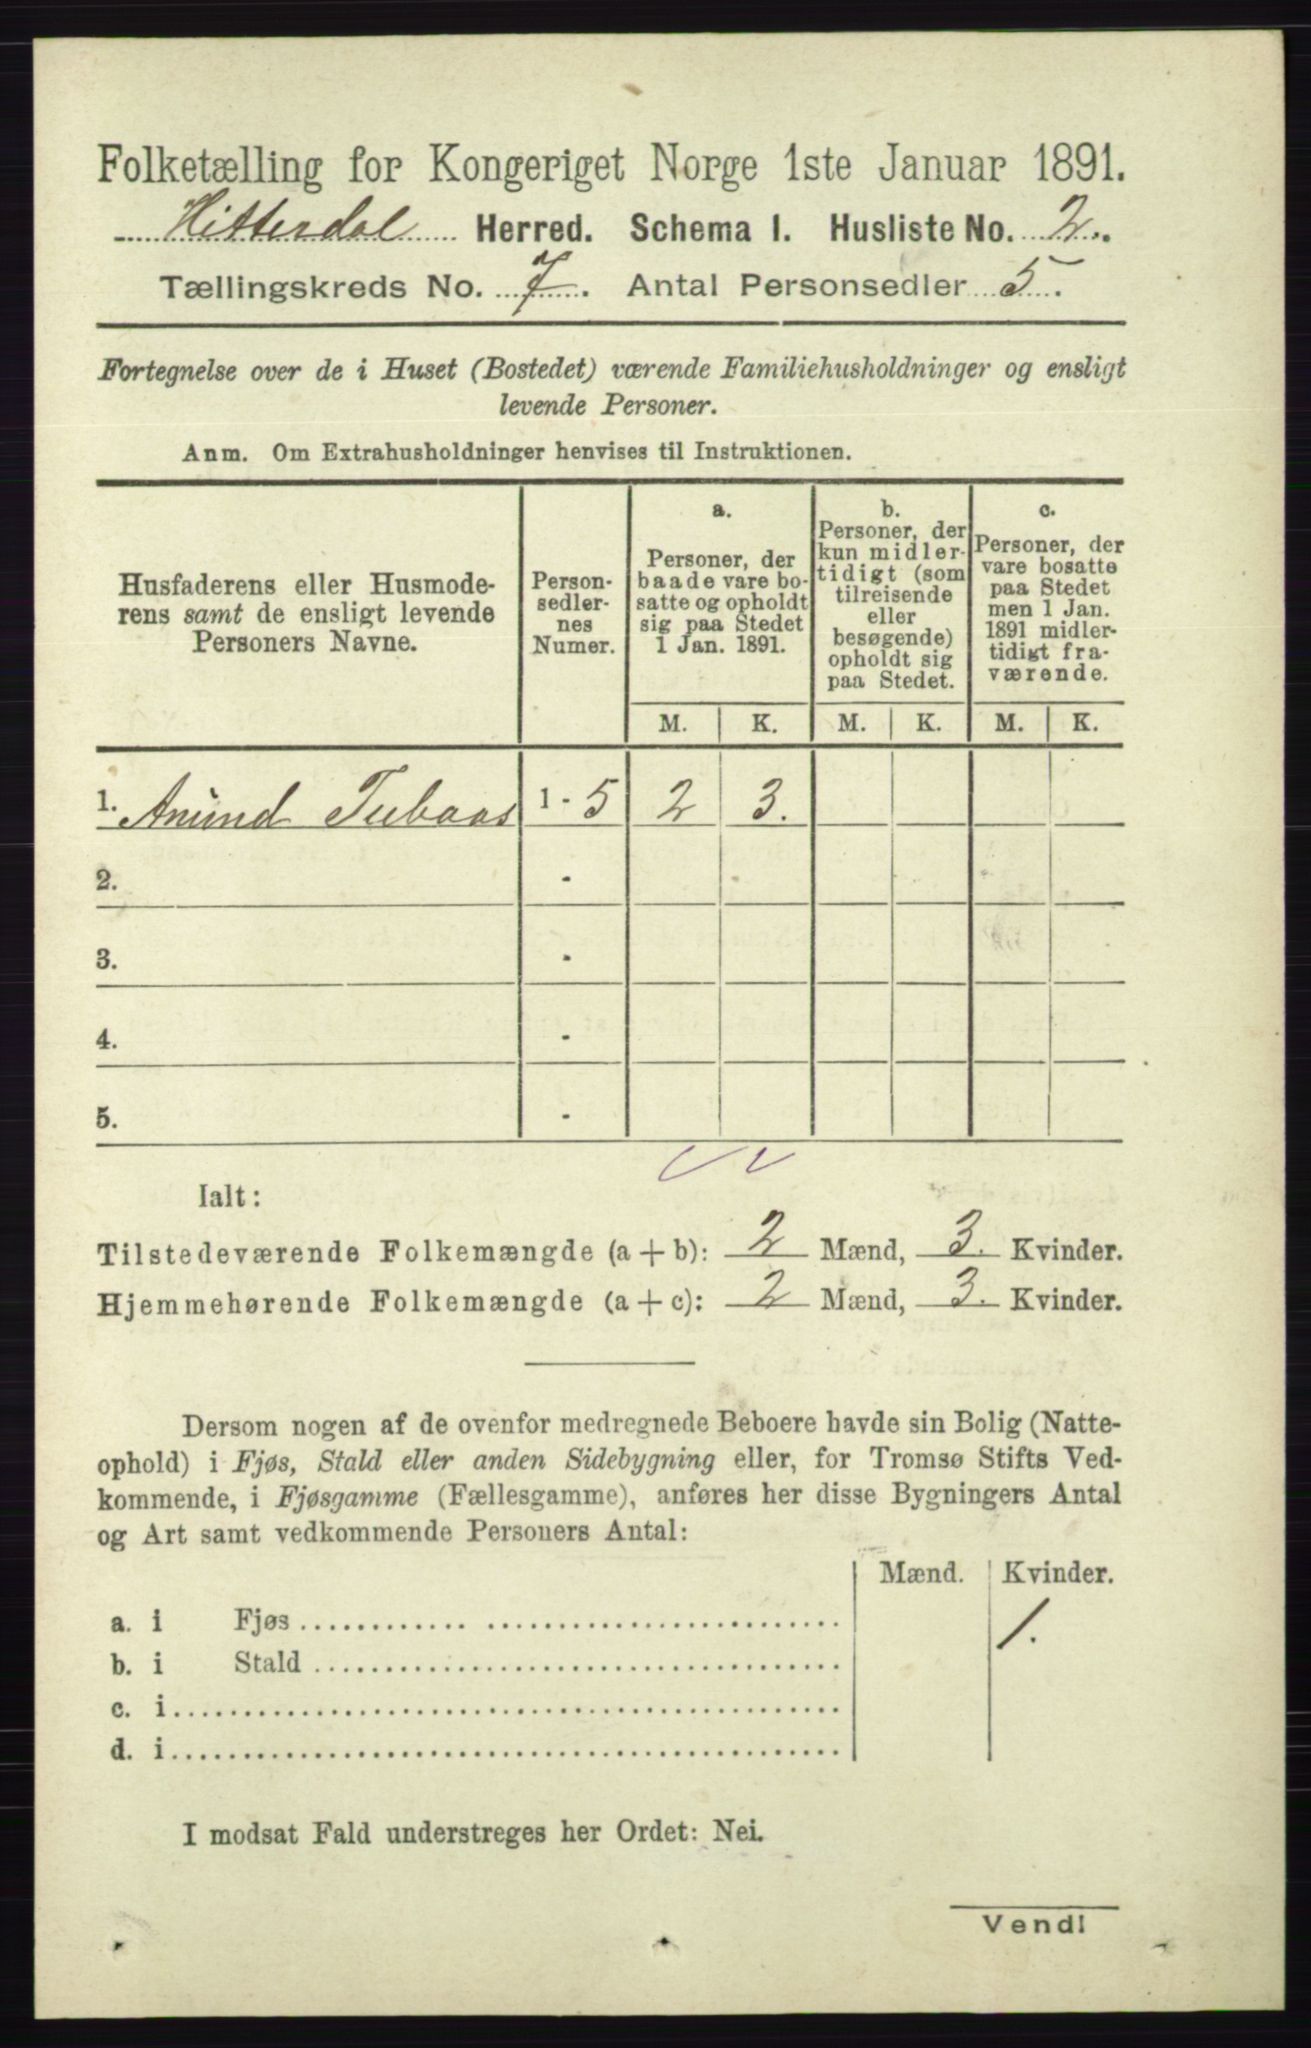 Folketælling for Kongeriget Norge 1ste Januar 1891.
Hitterdal Herred. Schema I. Husliste No. 2.
Tællingskreds No. 7. Antal Personsedler 5.
Fortegnelse over de i Huset (Bostedet) værende Familiehusholdninger og ensligt
levende Personer.
Anm. Om Extrahusholdninger henvises til Instruktionen.
Husfaderens eller Husmode-
rens samt de ensligt levende
Personers Navne.
Person-
sedler-
nes
Numer.
a.
Personer, der
baade vare bo-
satte og opholdt
sig paa Stedet
1 Jan. 1891.
b.
Personer, der
kun midler-
tidigt (som
tilreisende
eller
besøgende)
opholdt sig
paa Stedet.
c.
Personer, der
vare bosatte
paa Stedet
men 1 Jan.
1891 midler-
tidigt fra-
værende.
M. K. M. K. M. K.
1. Anund Tubaas 1 - 5 2 3.
2. -
3. -
4. -
5. -
Ialt:
Tilstedeværende Folkemængde (a + b): 2 Mænd, 3. Kvinder.
Hjemmehørende Folkemængde (a + c): 2 Mænd, 3. Kvinder.
Dersom nogen af de ovenfor medregnede Beboere havde sin Bolig (Natte-
ophold) i Fjøs, Stald eller anden Sidebygning eller, for Tromsø Stifts Ved-
kommende, i Fjøsgamme (Fællesgamme), anføres her disse Bygningers Antal
og Art samt vedkommende Personers Antal:
Mænd. Kvinder.
a. i Fjøs 1.
b. i Stald
c. i
d. i
I modsat Fald understreges her Ordet: Nei.
Vend!